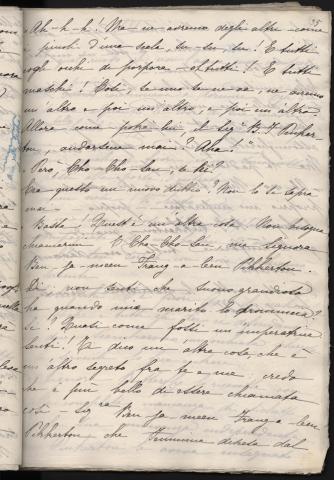 35
- Ah-h-h! Ma ne avremo degli altri come
i piuoli d'una scala, su, su, su! E tutti
cogli occhi di porpora - oh tutti! E tutti
maschi! Così, se uno se ne va, ne avremo
un altro e poi un altro, e poi un altro
Allora come potrà lui, il Sigr B. F. Pinker-
ton, andarsene mai? Aha!"
- Però, Cho-Cho-San, tu hai?
Era questo un nuovo dubbio? Non lo si saprà
mai
Basta! Quest'è un'altra cosa. Non bisogna
chiamarmi O Cho-Cho-San, ma signora
Ben-ja-meen Frang-a-leen Pikkerton.
Di', non senti che suono grandioso
ha quando mio marito lo pronuncia?
Sì! Quasi come fossi un'imperatrice
Senti! Ti dico un'altra cosa, che è
un altro segreto fra te e me, credo
che è più bello di essere chiamata
così - Sigra Ben-ja-meen Frang-a-leen
Pikkerton, che